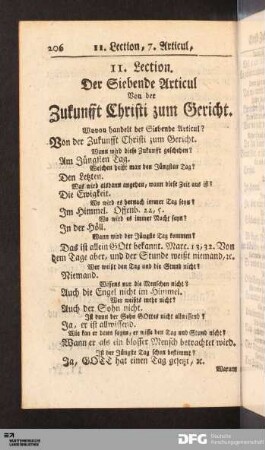 206 11. Lection, 7. Articul,
11. Lection.
Der Siebende Articul
Von der
Zukunfft Christi zum Gericht.
Wovon handelt der Siebende Articul?
Von der Zukunfft Christi zum Gericht.
Wann wird diese Zukunfft geschehen?
Am Jüngsten Tag.
Welchen heißt man den Jüngsten Tag?
Den Letzten.
Was wird alsdann angehen, wann diese Zeit aus ist?
Die Ewigkeit.
Wo wird es hernach immer Tag seyn?
Im Himmel. Offenb. 22, 5.
Wo wird es immer Nacht seyn?
In der Höll.
Wann wird der Jüngste Tag kommen?
Das ist allein GOtt bekannt. Marc. 13, 32. Von
dem Tage aber, und der Stunde weißt niemand, ꝛc.
Wer weißt den Tag und die Stund nicht?
Niemand.
Wissens nur die Menschen nicht?
Auch die Engel nicht im Himmel.
Wer weißts mehr nicht?
Auch der Sohn nicht.
Ist dann der Sohn GOttes nicht allwissend?
Ja, er ist allwissend.
Wie kan er dann sagen, er wisse den Tag und Stund nicht?
Wann er als ein blosser Mensch betrachtet wird.
Ist der Jüngste Tag schon bestimmt?
Ja, GOTT hat einen Tag gesetzt, ꝛc.
Warum
DFG
Deutsche
Forschungsgemeinschaft